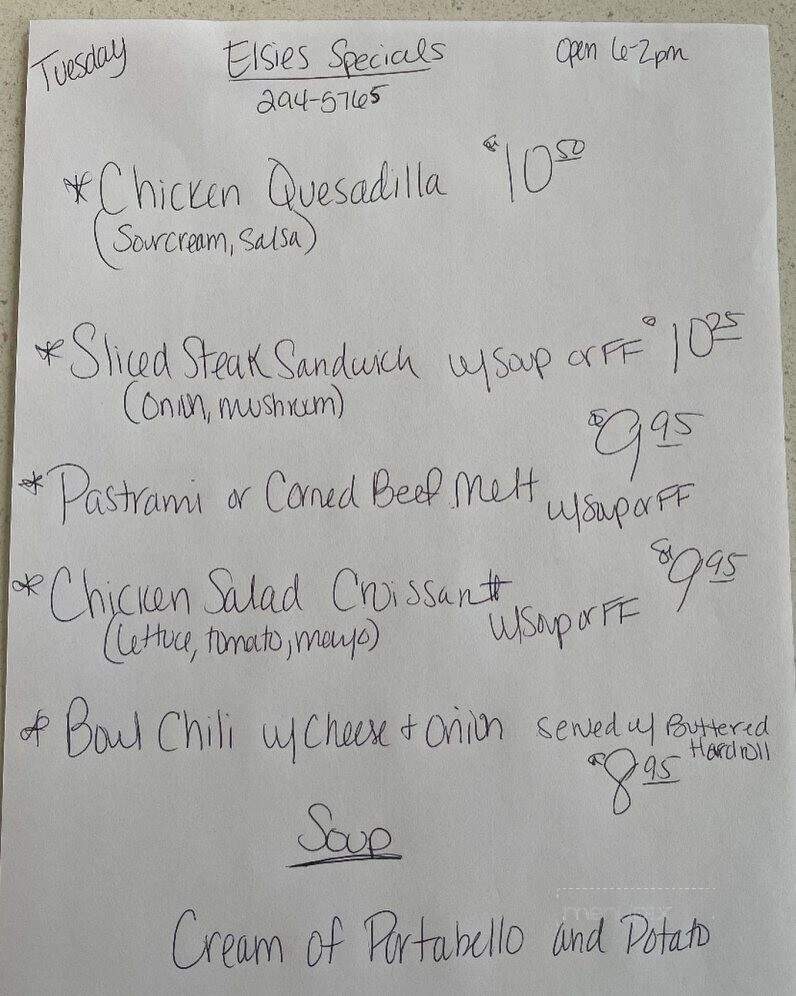 Tuesday Elsies Specials Open 6-2pm
294-5765
* Chicken Quesadilla $10.50
(Sourcream, Salsa)
* Sliced Steak Sandwich w/Soup or FF $10.25
(Onion, mushroom)
$9.95
* Pastrami or Corned Beef Melt w/Soup or FF
* Chicken Salad Croissant $9.95
(Lettuce, tomato, mayo) w/Soup or FF
* Bowl Chili w/Cheese + Onion Served w/ Buttered
Hardroll
$8.95
Soup
Cream of Portabello and Potato